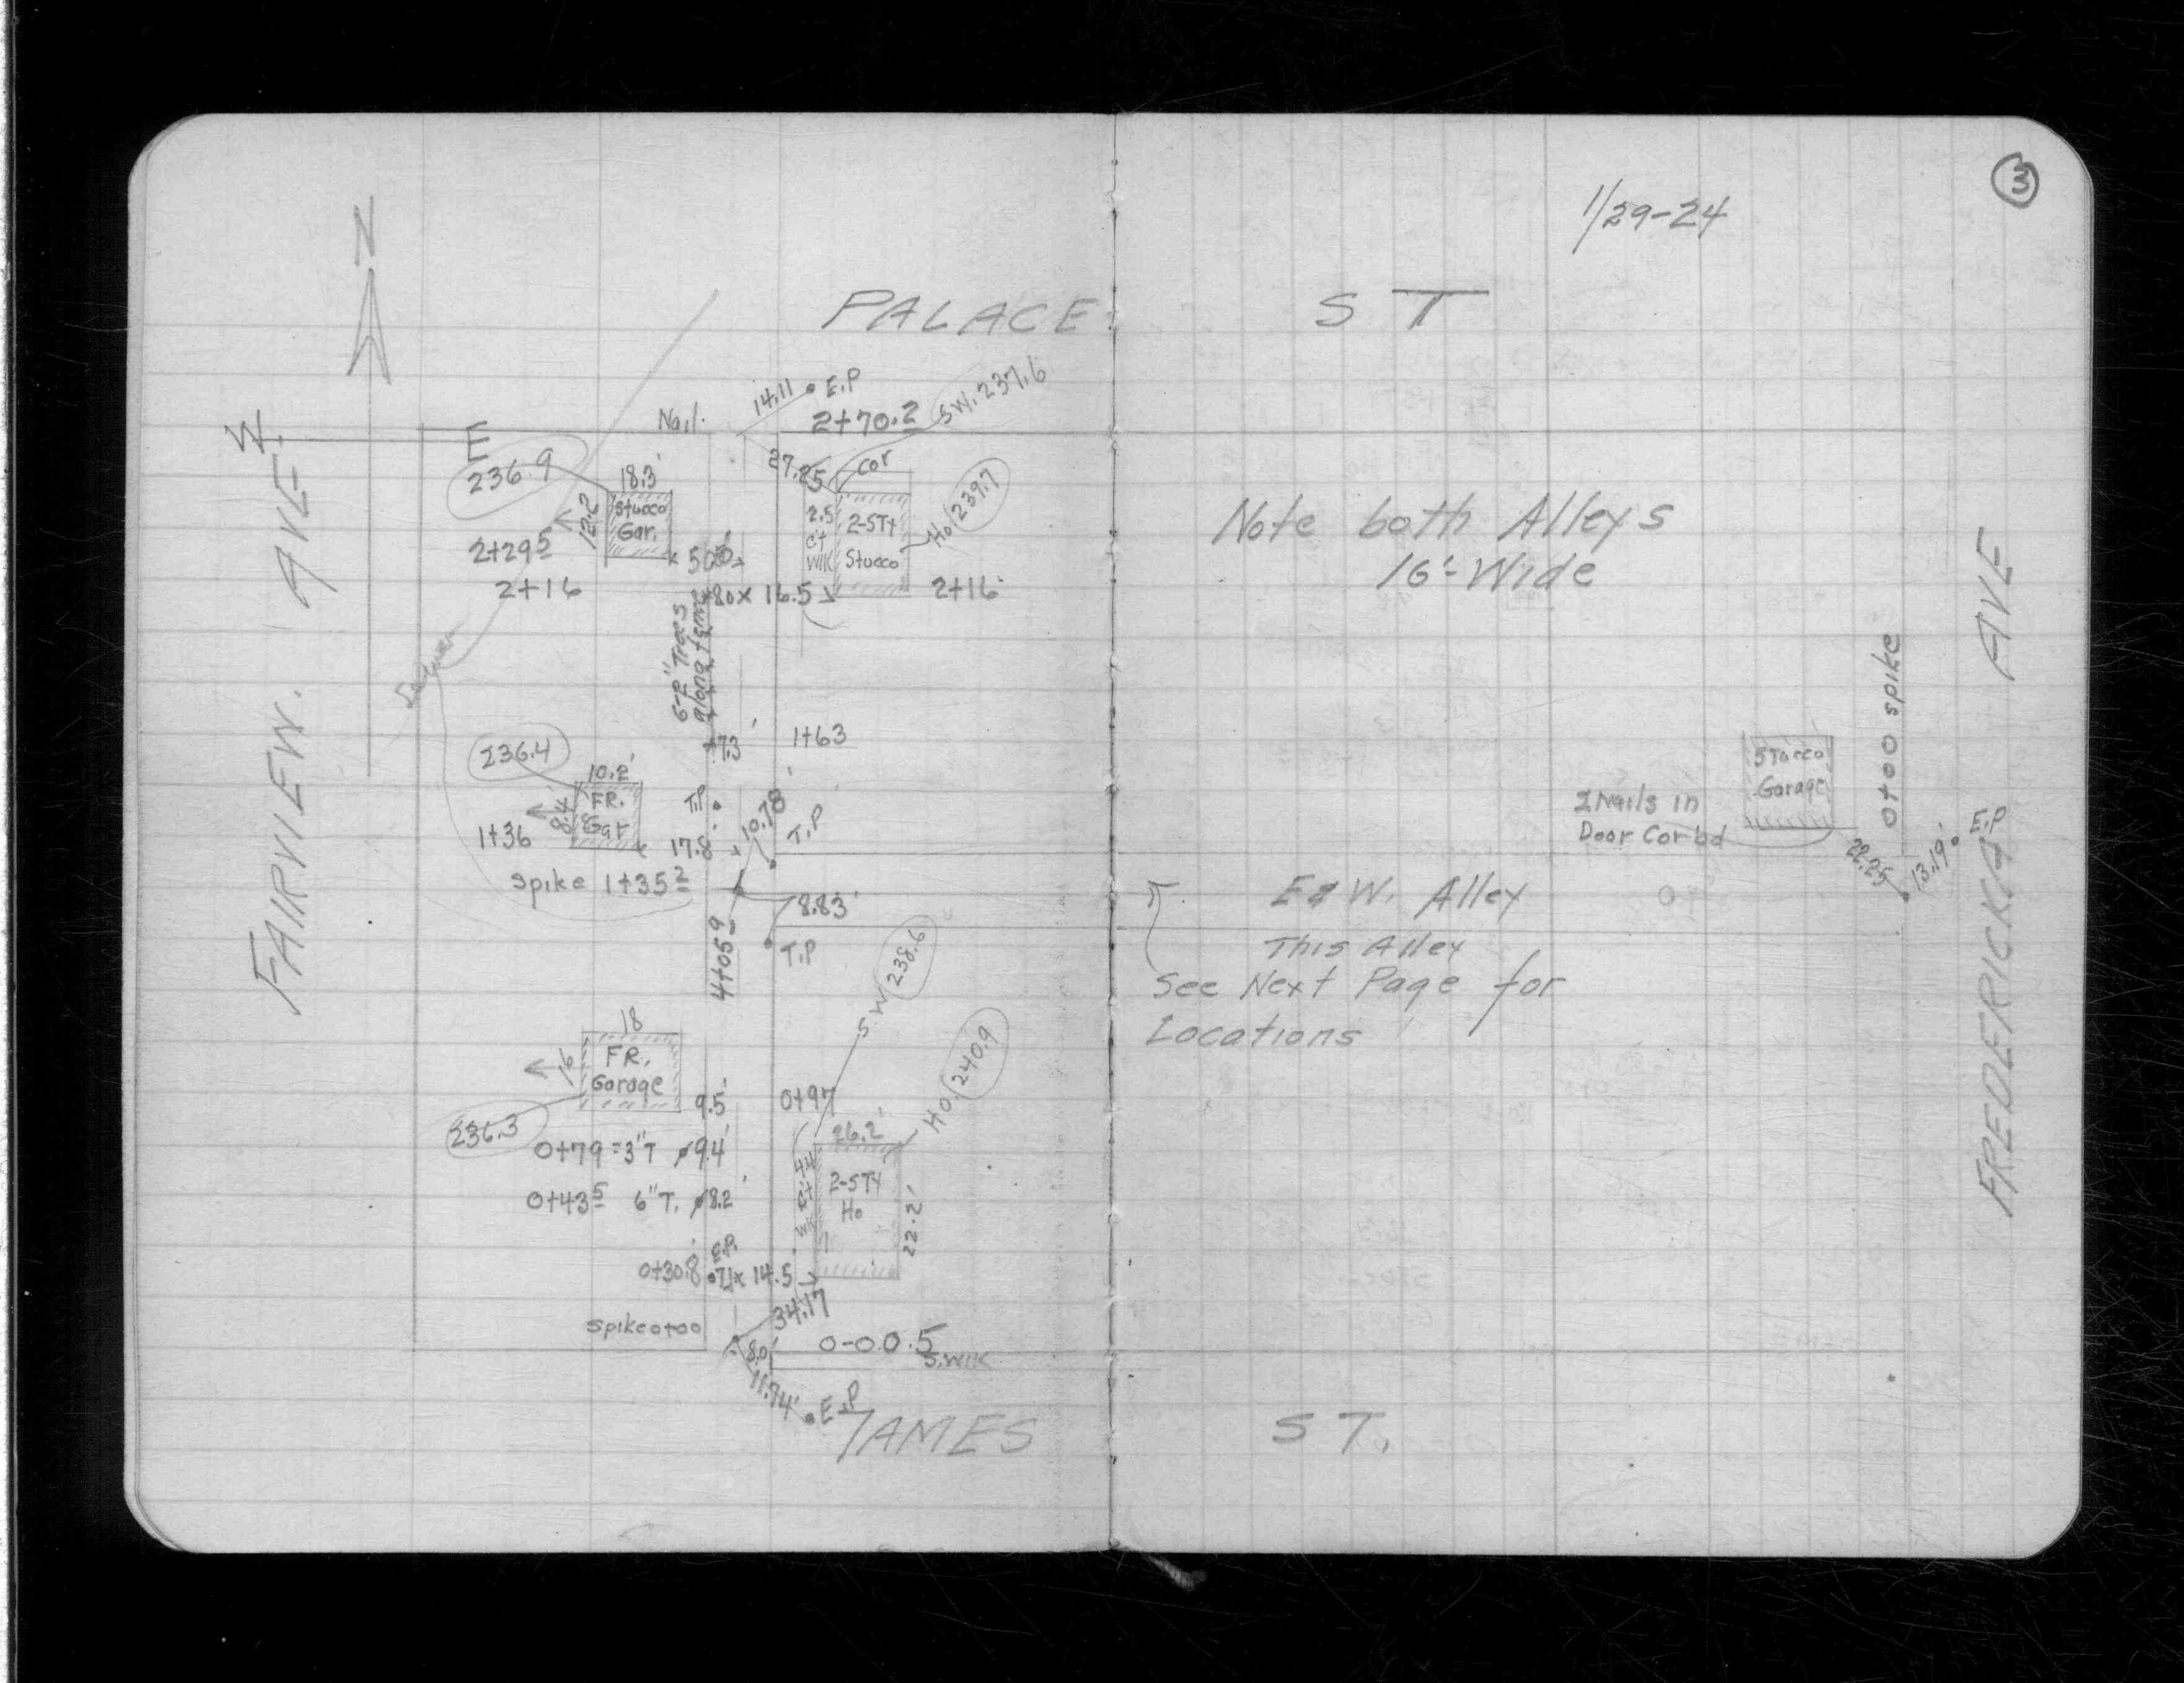 3
1/29-24
N
PALACE ST
FAIRVIEW. AVE
W
E
14.11 E.P
Nail
2+70.2
SW. 237.6
236.9
18.3'
27.25
cor
Ho 239.7
12.2
Stucco
Gar.
2.5
ct
WlK
2-STY
Stucco
2+29 5
50.5
2+16
8.0 x 16.5
2+16
6-2" Trees
along fence
Sewer
7.3'
1+63
236.4
10.2'
FR.
Gar
T.P
10.78'
T.P
1+36
17.8'
Spike 1+35 2
8.83'
4+05 9
T.P
SW 238.6
18
16
FR.
Garage
9.5
0+97
Ho. 240.9
236.3
26.2'
0+79 = 3"T 9.4'
0+43 5 6"T. 8.2'
4.4
ct
WK
2-STY
Ho
22.2'
E.P.
0+30.8 .71 x 14.5
34.17
Spike 0+00
8.0'
0-00.5
S. WlK
11.74'
E.P
JAMES ST.
Note both Alleys
16'- Wide
0+00 spike
Stucco
Garage
2 Nails in
Door Cor bd
22.25
13.19'
E.P
E & W. Alley
This Alley
See Next Page for
Locations
FREDERICKA AVE